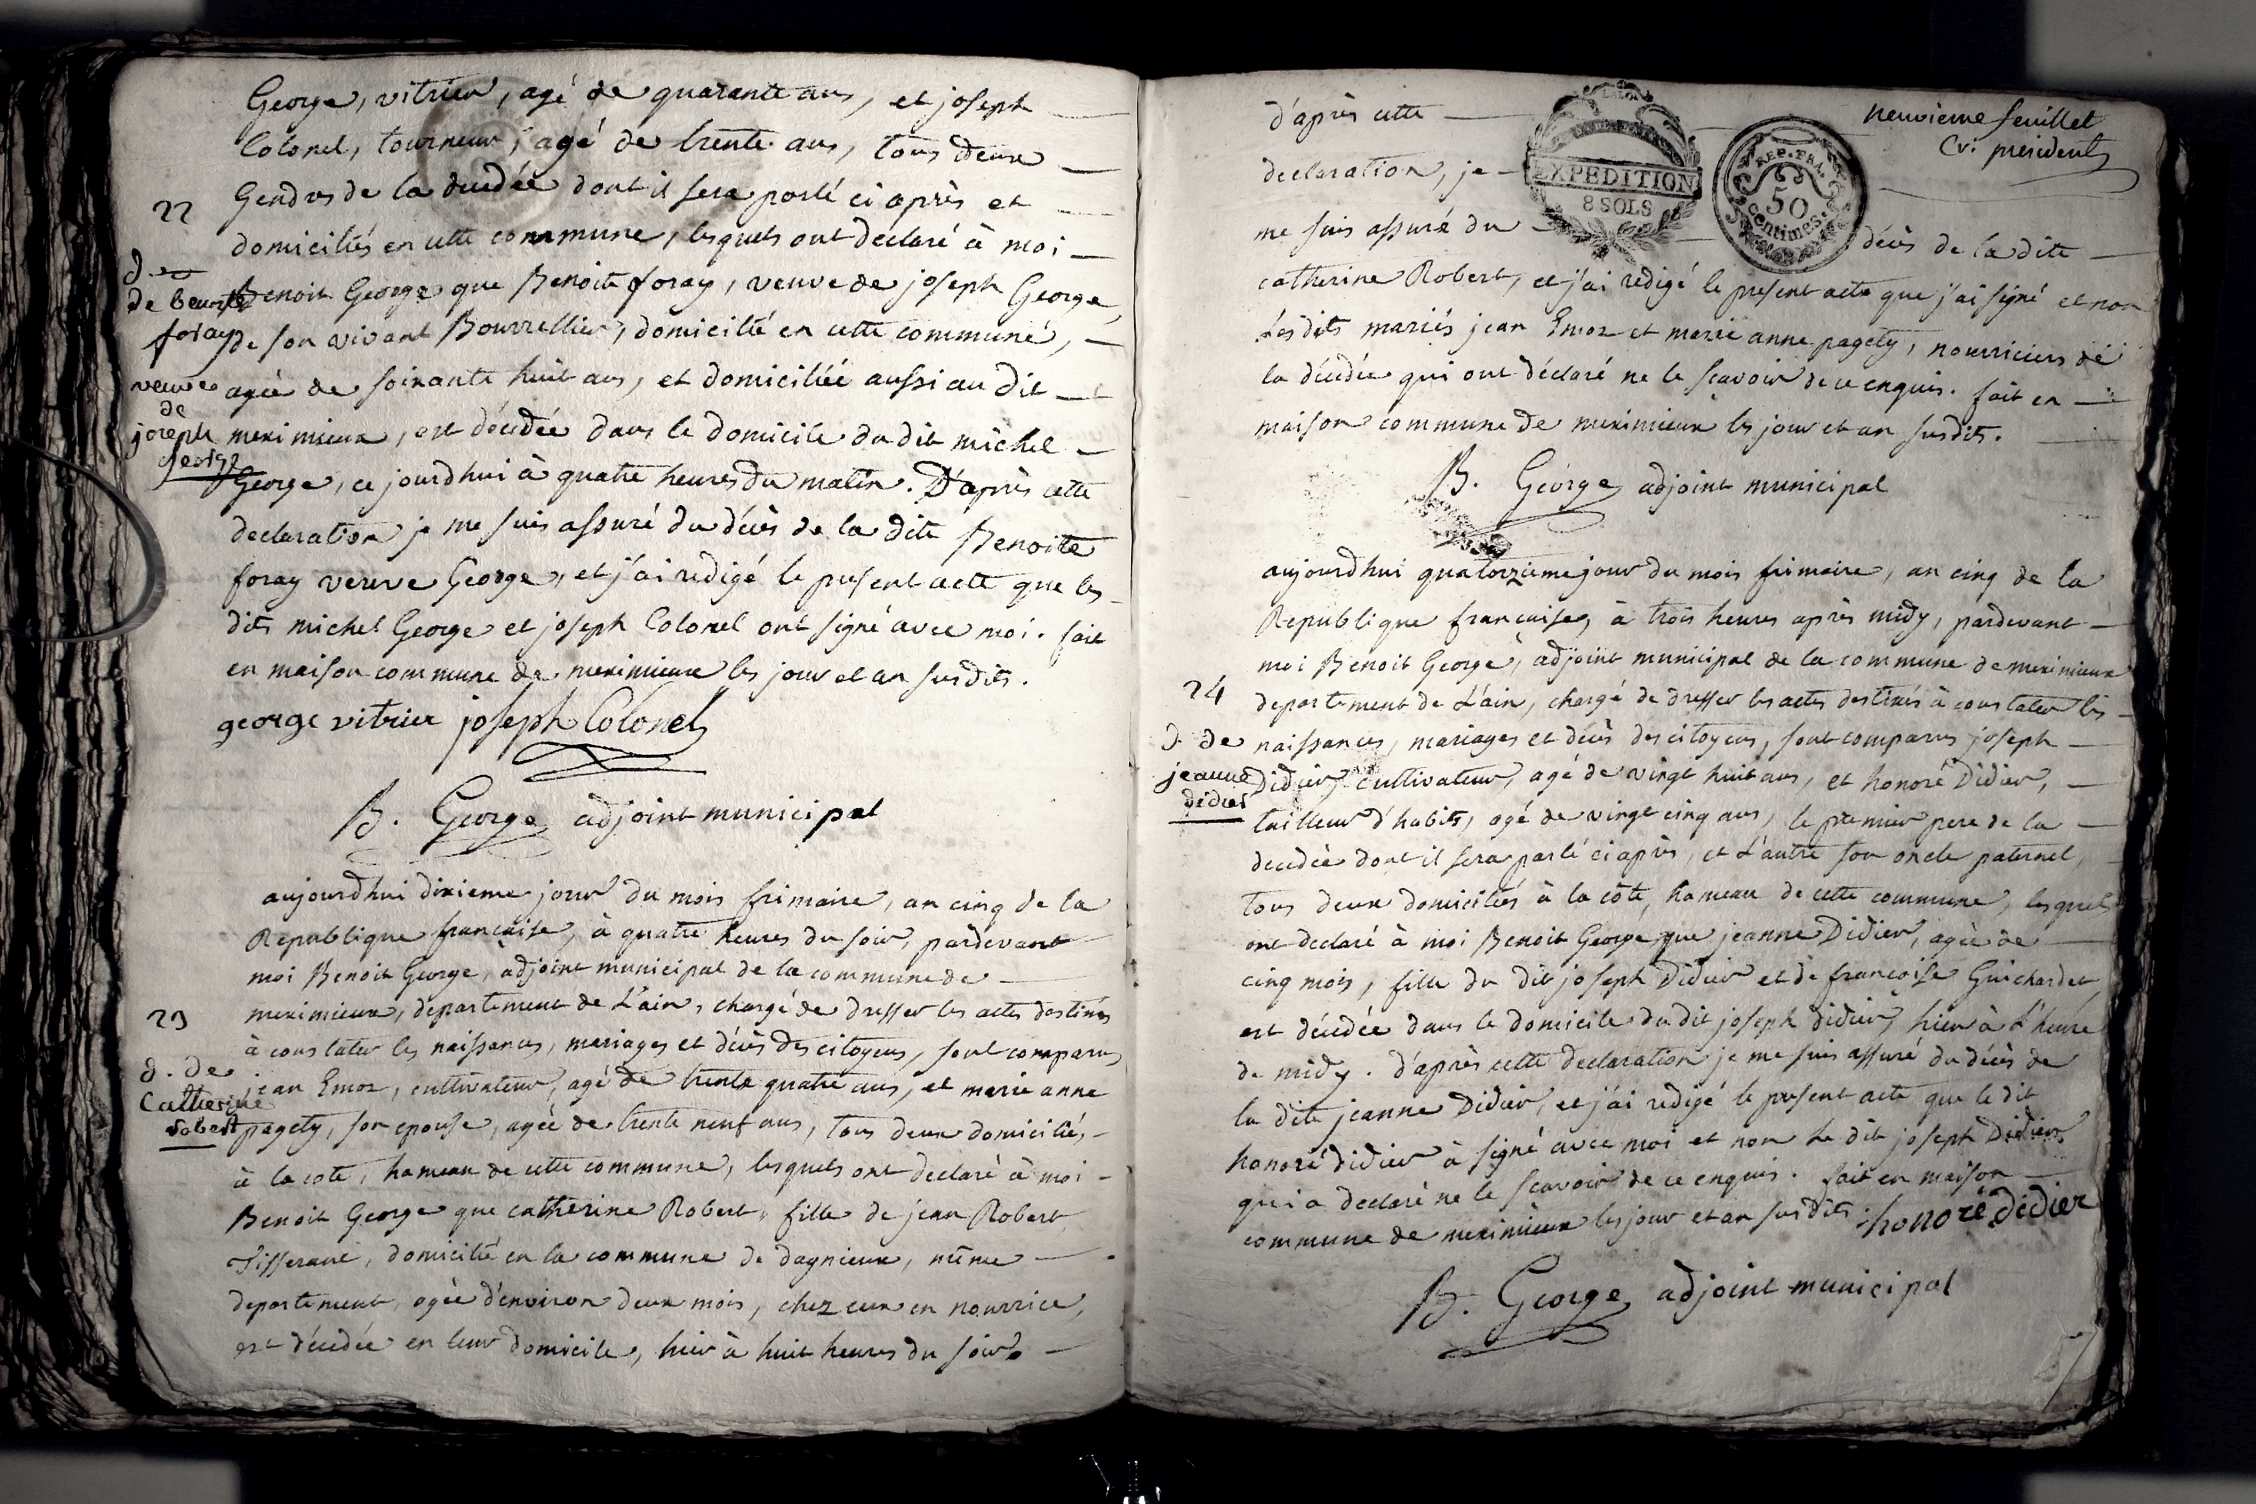 George, vitrier, agé de quarante ans, et joseph
Colonel, tourneur, agé de trente ans, tous deux
Gendres de la decédée dont il sera parlé ci après et
domiciliés en cette commune, lesquels ont déclaré à moi
Benoit George que Benoite foray, veuve de joseph George,
de son vivant Bourrellier, domicilié en cette commune,
agée de soixante huit ans, et domiciliée aussi au dit
meximieux, est décédée dans le domicile du dit michel
George, ce jourdhui à quatre heures du matin. D'après cette
declaration je me suis assuré du décès de la dite Benoite
foray veuve George, et j'ai redigé le present acte que les
dits michel George et joseph Colonel ont signé avec moi. fait
en maison commune de meximieux les jour et an susdits.
george vitrier joseph Colonel
B. George adjoint municipal
22
d.
de benoite
foray
veuve
de
joseph
george
aujourdhui dixieme jour du mois frimaire, an cinq de la
Republique francaise, à quatre heures du soir, pardevant
moi Benoit George, adjoint municipal de la commune de
meximieux, departement de L'ain, chargé de dresser les actes destinés
à constater les naissances, mariages et décès des citoyens, sont comparus
jean Emoz, cultivateur, agé de trente quatre ans, et marie anne
pagety, son epouse, agée de trente neuf ans, tous deux domiciliés
à la cote, hameau de cette commune, lesquels ont declaré à moi
Benoit George que catherine Robert, fille de jean Robert
Tisserand, domicilié en la commune de dagnieux, même
departement, agée d'environ deux mois, chez eux en nourrice,
est décédée en leur domicile, hier à huit heures du soir.
23
d. de
Catherine
robert
neuvieme feuillet
Cv. president
EXPEDITION
8 SOLS
REP. FRA.
50
centimes.
d'après cette
declaration, je
me suis assuré du décès de la dite
catherine Robert, et j'ai redigé le present acte que j'ai signé et non
Lesdits mariés jean Emoz et marie anne pagety, nourriciers de
la décédée qui ont déclaré ne le scavoir de ce enquis. fait en
maison commune de meximieux les jour et an susdits.
B. George adjoint municipal
aujourdhui quatorzieme jour du mois frimaire, an cinq de la
Republique francaise, à trois heures après midy, pardevant
moi Benoit George, adjoint municipal de la commune de meximieux
departement de L'ain, chargé de dresser les actes destinés à constater les
naissances, mariages et décès des citoyens, sont comparus joseph
Didier, cultivateur, agé de vingt huit ans, et honoré Didier,
tailleur d'habits, agé de vingt cinq ans, le premier pere de la
decédée dont il sera parlé ci après, et L'autre son oncle paternel,
tous deux domiciliés à la côte, hameau de cette commune, lesquels
ont declaré à moi Benoit George que jeanne Didier, agée de
cinq mois, fille du dit joseph Didier et de francoise Guichardet,
est décédée dans le domicile du dit joseph didier, hier à L'heure
de midy. d'après cette declaration je me suis assuré du décès de
la dite jeanne Didier, et j'ai redigé le present acte que le dit
honoré didier à signé avec moi et non le dit joseph Didier
qui a declaré ne le scavoir de ce enquis. fait en maison
commune de meximieux les jour et an susdits. honoré didier
B. George adjoint municipal
24
d. de
jeanne
didier